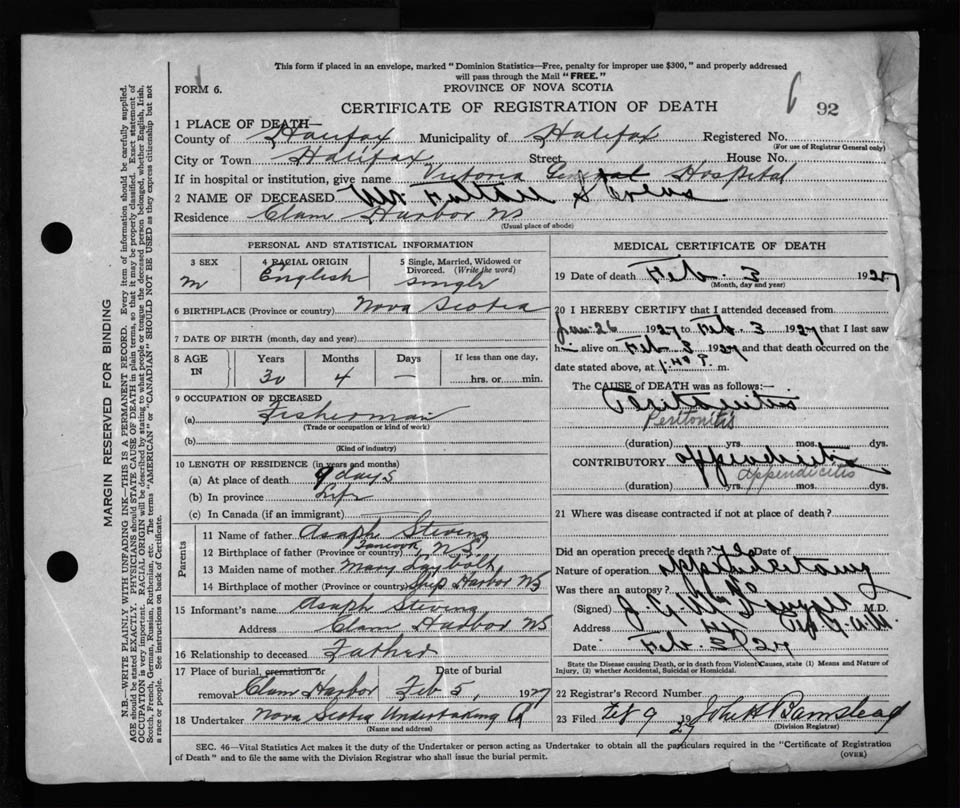 This form if placed in an envelope, marked "Dominion Statistics—Free, penalty for improper use $300," and properly addressed
will pass through the Mail "FREE."
FORM 6.
PROVINCE OF NOVA SCOTIA
CERTIFICATE OF REGISTRATION OF DEATH
92
1 PLACE OF DEATH—
County of Halifax Municipality of Halifax Registered No.
(For use of Registrar General only)
City or Town Halifax Street House No.
If in hospital or institution, give name Victoria General Hospital
2 NAME OF DECEASED Mr.
Residence Clam Harbor NS
(Usual place of abode)
PERSONAL AND STATISTICAL INFORMATION
3 SEX 4 RACIAL ORIGIN 5 Single, Married, Widowed or Divorced. (Write the word)
m English single
6 BIRTHPLACE (Province or country) Nova Scotia
7 DATE OF BIRTH (month, day and year)
8 AGE IN Years Months Days If less than one day,
30 4 — hrs. or min.
9 OCCUPATION OF DECEASED
(a) Fisherman
(Trade or occupation or kind of work)
(b)
(Kind of industry)
10 LENGTH OF RESIDENCE (in years and months)
(a) At place of death 9 days
(b) In province Life
(c) In Canada (if an immigrant)
Parents
11 Name of father Asaph Stevens
12 Birthplace of father (Province or country) N.S.
13 Maiden name of mother Mary Laybolt
14 Birthplace of mother (Province or country) Ship Harbor NS
15 Informant's name Asaph Stevens
Address Clam Harbor NS
16 Relationship to deceased Father
17 Place of burial, cremation or removal Clam Harbor Date of burial Feb 5, 1927
18 Undertaker Nova Scotia Undertaking Co
(Name and address)
MEDICAL CERTIFICATE OF DEATH
19 Date of death Feb. 3 1927
(Month, day and year)
20 I HEREBY CERTIFY that I attended deceased from
Jan. 26 1927 to Feb. 3 1927 that I last saw
him alive on Feb 3 1927 and that death occurred on the
date stated above, at 1.40 P. m.
The CAUSE of DEATH was as follows:—
Peritonitis
Peritonitis
(duration) yrs. mos. dys.
CONTRIBUTORY appendicitis
Appendicitis
(duration) yrs. mos. dys.
21 Where was disease contracted if not at place of death?
Did an operation precede death? Yes Date of
Nature of operation appendectomy
Was there an autopsy?
(Signed) M.D.
Address
Date Feb. 3/27
State the Disease causing Death, or in death from Violent Causes, state (1) Means and Nature of
Injury, (2) whether Accidental, Suicidal or Homicidal.
22 Registrar's Record Number
23 Filed Feb 9 1927 John H Barnstead
(Division Registrar)
SEC. 46—Vital Statistics Act makes it the duty of the Undertaker or person acting as Undertaker to obtain all the particulars required in the "Certificate of Registration
of Death" and to file the same with the Division Registrar who shall issue the burial permit.
(OVER)
MARGIN RESERVED FOR BINDING
N.B.—WRITE PLAINLY WITH UNFADING INK—THIS IS A PERMANENT RECORD. Every item of information should be carefully supplied.
AGE should be stated EXACTLY. PHYSICIANS should STATE CAUSE OF DEATH in plain terms, so that it may be properly classified. Exact statement of
OCCUPATION is very important. RACIAL ORIGIN will be described by stating to what people or tongue the deceased person belonged, whether English, Irish,
Scotch, French, German, Russian, Ruthenian, etc. The terms "AMERICAN" or "CANADIAN" SHOULD NOT BE USED as they express citizenship but not
a race or people. See instructions on back of Certificate.